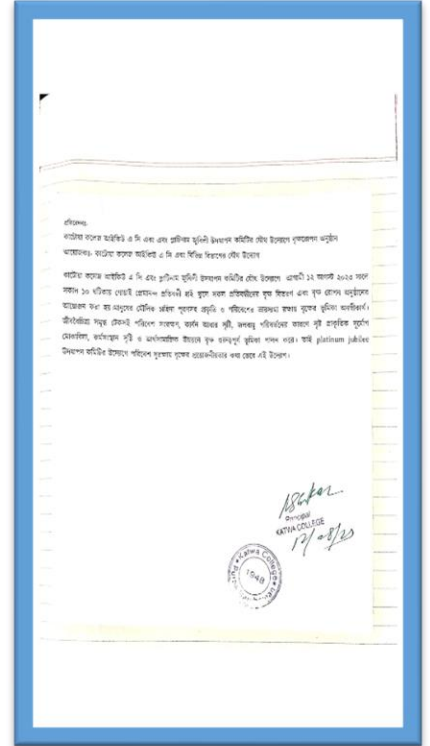 প্রতিবেদনঃ
কাটোয়া কলেজ আইকিউ এ সি এবং এবং প্লাটিনাম জুবিলী উদযাপন কমিটির যৌথ উদ্যোগে বৃক্ষরোপন অনুষ্ঠান
আয়োজনেঃ কাটোয়া কলেজ আইকিউ এ সি এবং বিভিন্ন বিভাগের যৌথ উদ্যোগ
কাটোয়া কলেজ আইকিউ এ সি এবং প্লাটিনাম জুবিলী উদযাপন কমিটির যৌথ উদ্যোগে আগামী ১২ আগস্ট ২০২৩ সালে
সকাল ১০ ঘটিকায় প্রতিবন্ধী হাই স্কুলে সকল প্রতিবন্ধীদের বৃক্ষ বিতরণ এবং বৃক্ষ রোপন অনুষ্ঠানের
আয়োজন করা হয় মানুষের মৌলিক চাহিদা পূরণসহ প্রকৃতি ও পরিবেশের ভারসাম্য রক্ষায় বৃক্ষের ভূমিকা অনস্বীকার্য।
জীববৈচিত্র্য সমৃদ্ধ টেকসই পরিবেশ সংরক্ষণ, কার্বন আধার সৃষ্টি, জলবায়ু পরিবর্তনের কারণে সৃষ্ট প্রাকৃতিক দুর্যোগ
মোকাবিলা, কর্মসংস্থান সৃষ্টি ও আর্থসামাজিক উন্নয়নে বৃক্ষ গুরুত্বপূর্ণ ভূমিকা পালন করে। তাই platinum jubilee
উদযাপন কমিটির উদ্যোগে পরিবেশ সুরক্ষায় বৃক্ষের প্রয়োজনীয়তার কথা ভেবে এই উদ্যোগ।
Principal
KATWA COLLEGE
12/08/23
Katwa College
1948